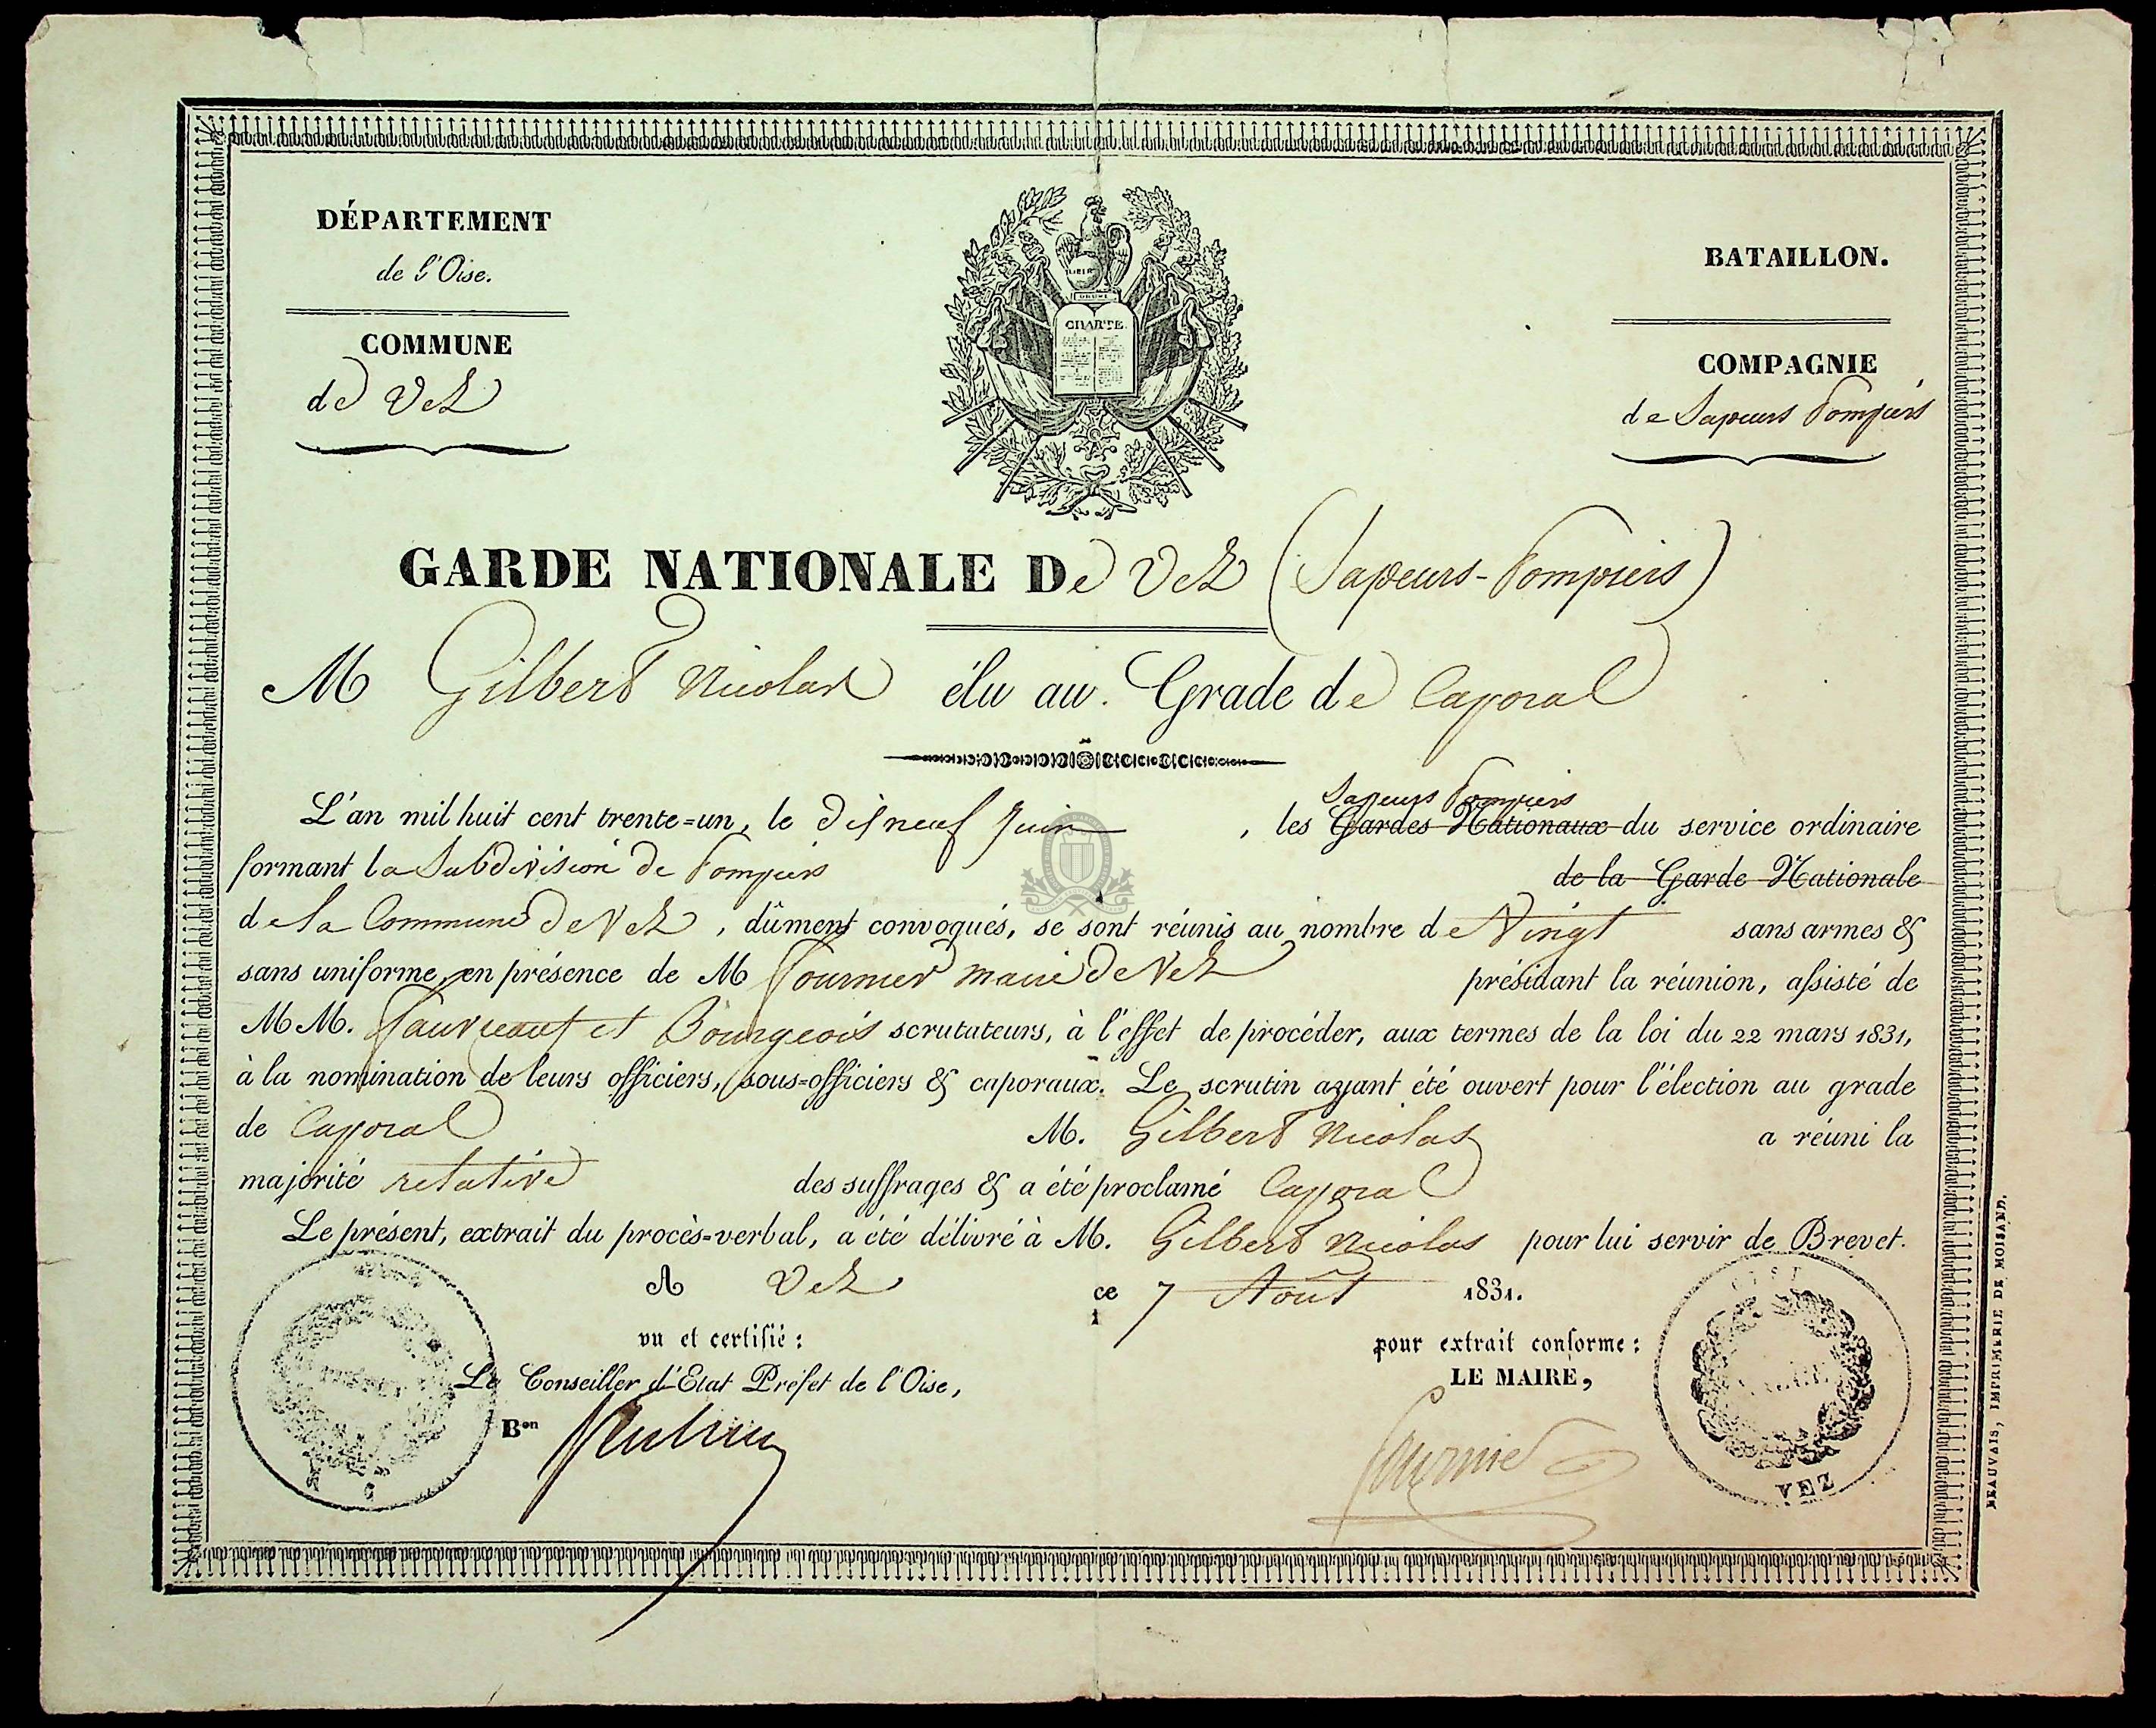 DÉPARTEMENT
de l'Oise.
COMMUNE
de Vez
CHARTE
BATAILLON.
COMPAGNIE
de Sapeurs Pompiers
GARDE NATIONALE De Vez (Sapeurs-Pompiers)
M Gilbert Nicolas élu au Grade de Caporal
Sapeurs Pompiers
L'an mil huit cent trente-un, le dix neuf Juin, les Gardes Nationaux du service ordinaire
formant la Subdivision de Pompiers de la Garde Nationale
de la Commune de Vez, dûment convoqués, se sont réunis au nombre de Vingt sans armes &
sans uniforme, en présence de M Fournier maire de Vez présidant la réunion, assisté de
MM. et Bourgeois scrutateurs, à l'effet de procéder, aux termes de la loi du 22 mars 1831,
à la nomination de leurs officiers, sous-officiers & caporaux. Le scrutin ayant été ouvert pour l'élection au grade
de Caporal M. Gilbert Nicolas a réuni la
majorité relative des suffrages & a été proclamé Caporal
Le présent, extrait du procès-verbal, a été délivré à M. Gilbert Nicolas pour lui servir de Brevet.
A Vez ce 7 Août 1831.
vu et certifié :
Le Conseiller d'Etat Préfet de l'Oise,
Bon
pour extrait conforme :
LE MAIRE,
Fournier
VEZ
BEAUVAIS, IMPRIMERIE DE MOISAND.